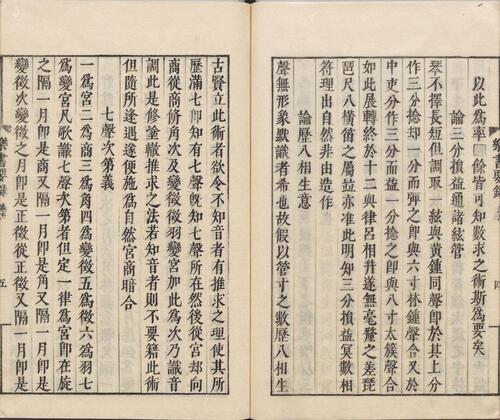 以此爲率𨻶餘皆可知數求之術斯爲要矣
論三分損益通諸絃管
琴不擇長短但調取一絃與黃鍾同聲即於其上分
作三分捻却一分而彈之即與六寸林鍾聲合又於
中更分作三分而益一分捻之即與八寸太簇聲合
如此展轉終於十二與律呂相升遂無毫釐之差琵
琶尺八橫笛之屬並亦准此明知三分損益冥數相
符理出自然非由造作
論歷八相生意
聲無形象默識者希也故假以管寸之數歷八相生
古賢立此術者欲令不知音者有推求之理使其所
歷滿七即知有七聲旣知七聲所在然後從宮却向
商從商脩角次及變徵徵羽變宮加此爲次乃識音
調此是修塗轍推求之法若知音者則不要籍此術
但隨所逢遇遂便施爲自然宮商暗合
七聲次第義
一爲宮二爲商三爲角四爲變徵五爲徵六爲羽七
爲變宮凡歌識七聲次第者但定一律爲宮即在旋
之隔一月即是商又隔一月即是角又隔一月即是
變徵次變徵之月即是正徵從正徵又隔一月即是
樂書要錄
五
四